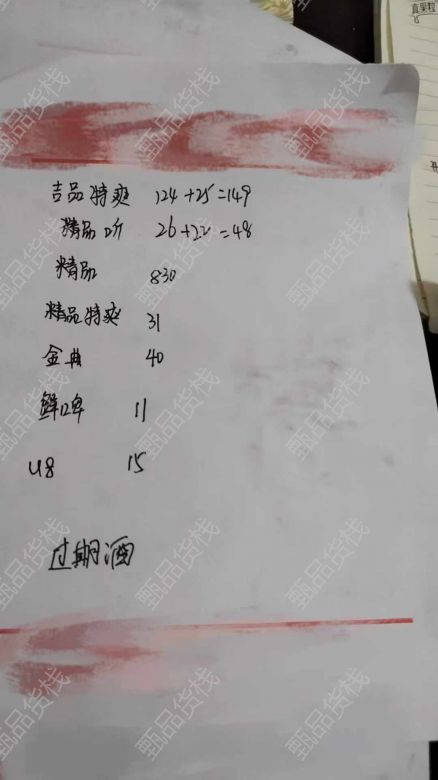 真果粒
吉品特爽 124+25=149
精品听 26+22=48
精品 830
精品特爽 31
金典 40
鲜啤 11
U8 15
过期酒
甄品货栈